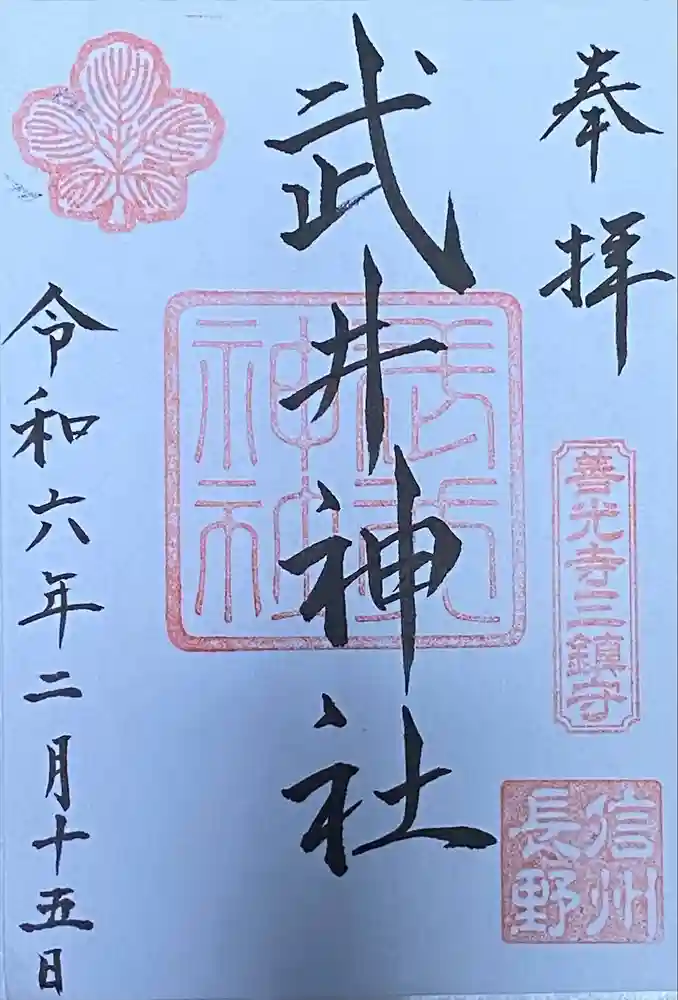 奉拝
善光寺三鎮守
信州
長野
武井神社
令和六年二月十五日